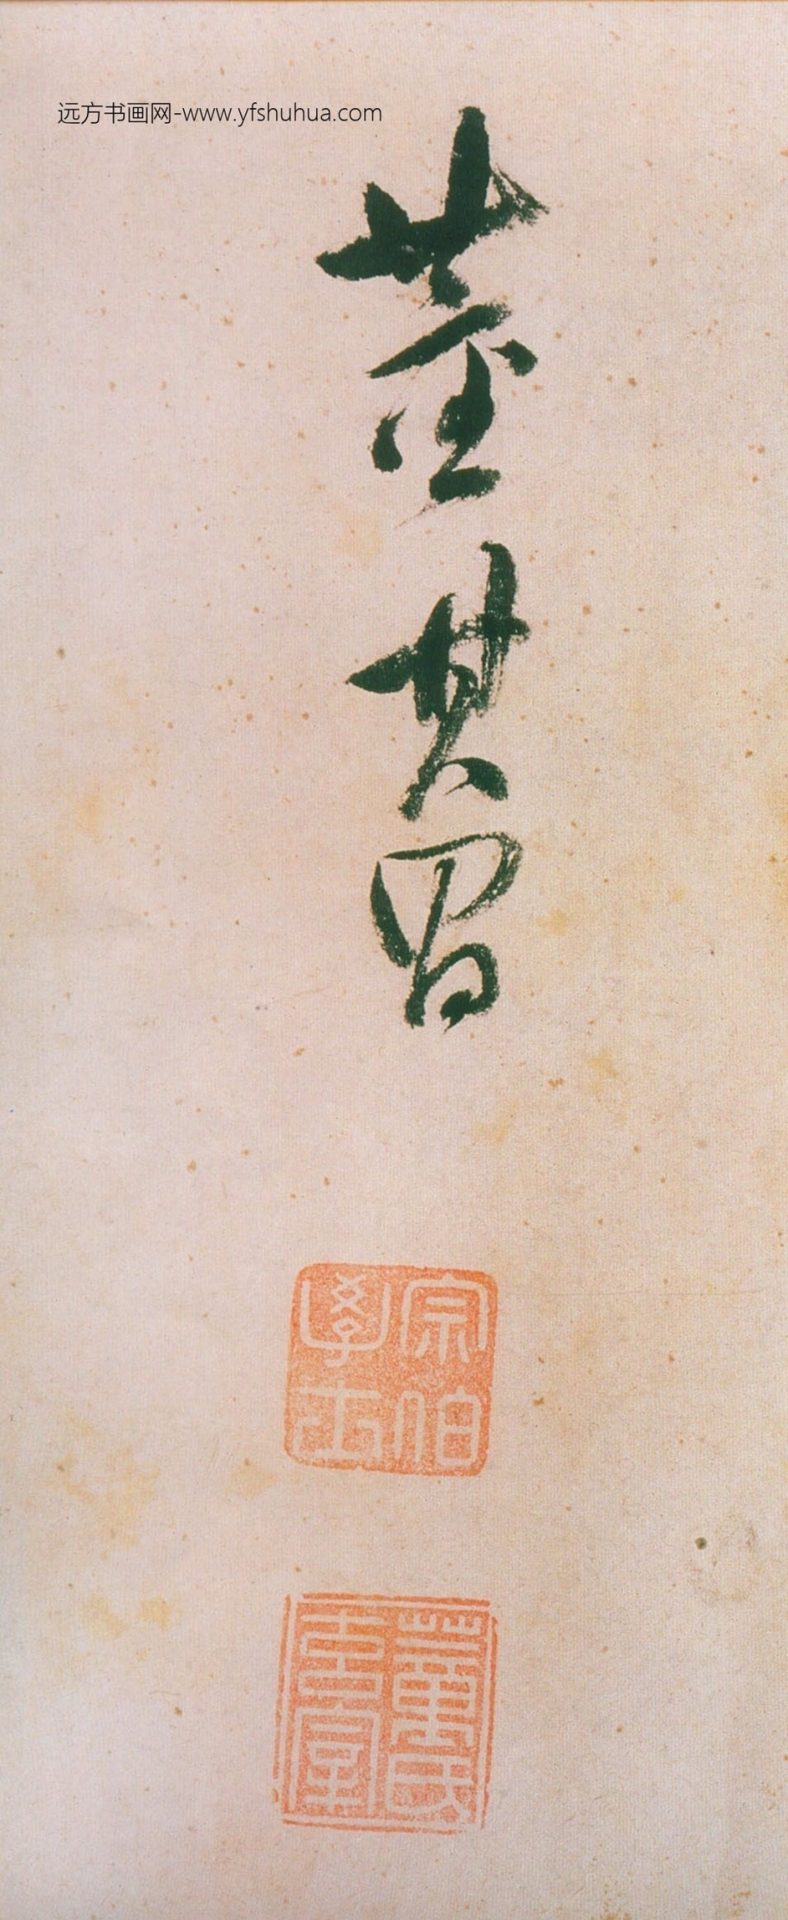 远方书画网-www.yfshuhua.com
董其昌
宗伯學士
董氏玄宰